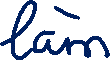 làm